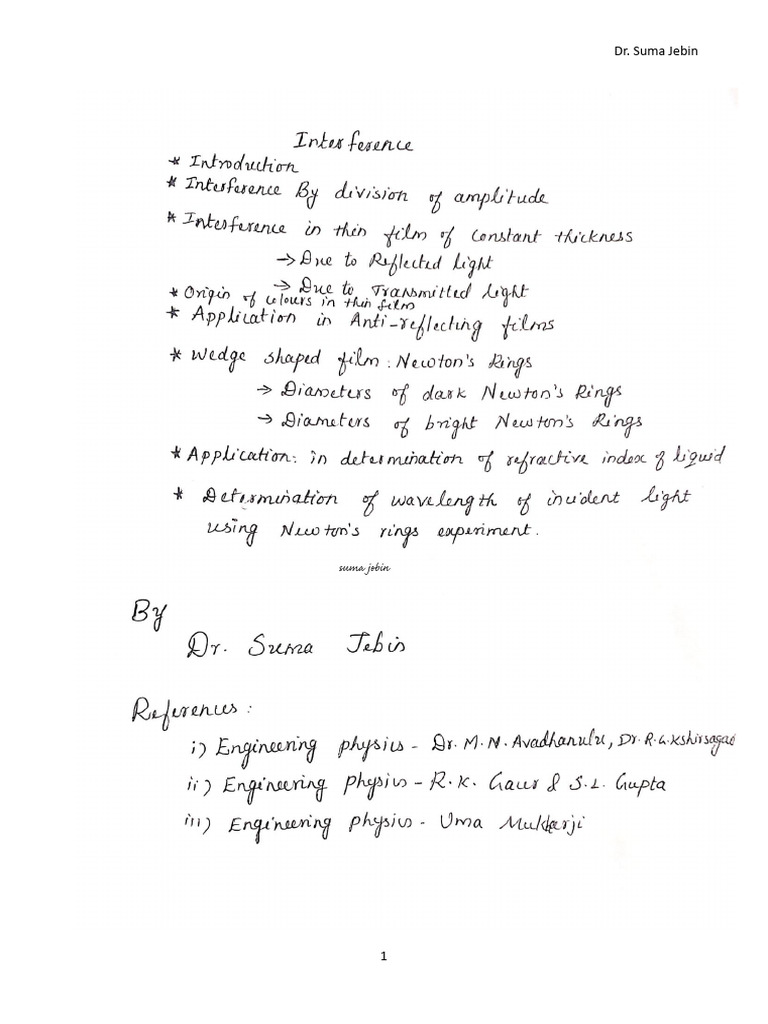 Dr. Suma Jebin
Interference
* Introduction
* Interference By division of amplitude
* Interference in thin film of constant thickness
→ Due to Reflected light
→ Due to Transmitted light
* Origin of colours in thin film
* Application in Anti-reflecting films
* Wedge shaped film: Newton's Rings
→ Diameters of dark Newton's Rings
→ Diameters of bright Newton's Rings
* Application: in determination of refractive index of liquid
* Determination of wavelength of incident light
using Newton's rings experiment.
suma jebin
By
Dr. Suma Jebin
References:
i) Engineering physics - Dr. M. N. Avadhanulu, Dr. R. G. Kshirsagar
ii) Engineering physics - R. K. Gaur & S. L. Gupta
iii) Engineering physics - Uma Mukherji
1